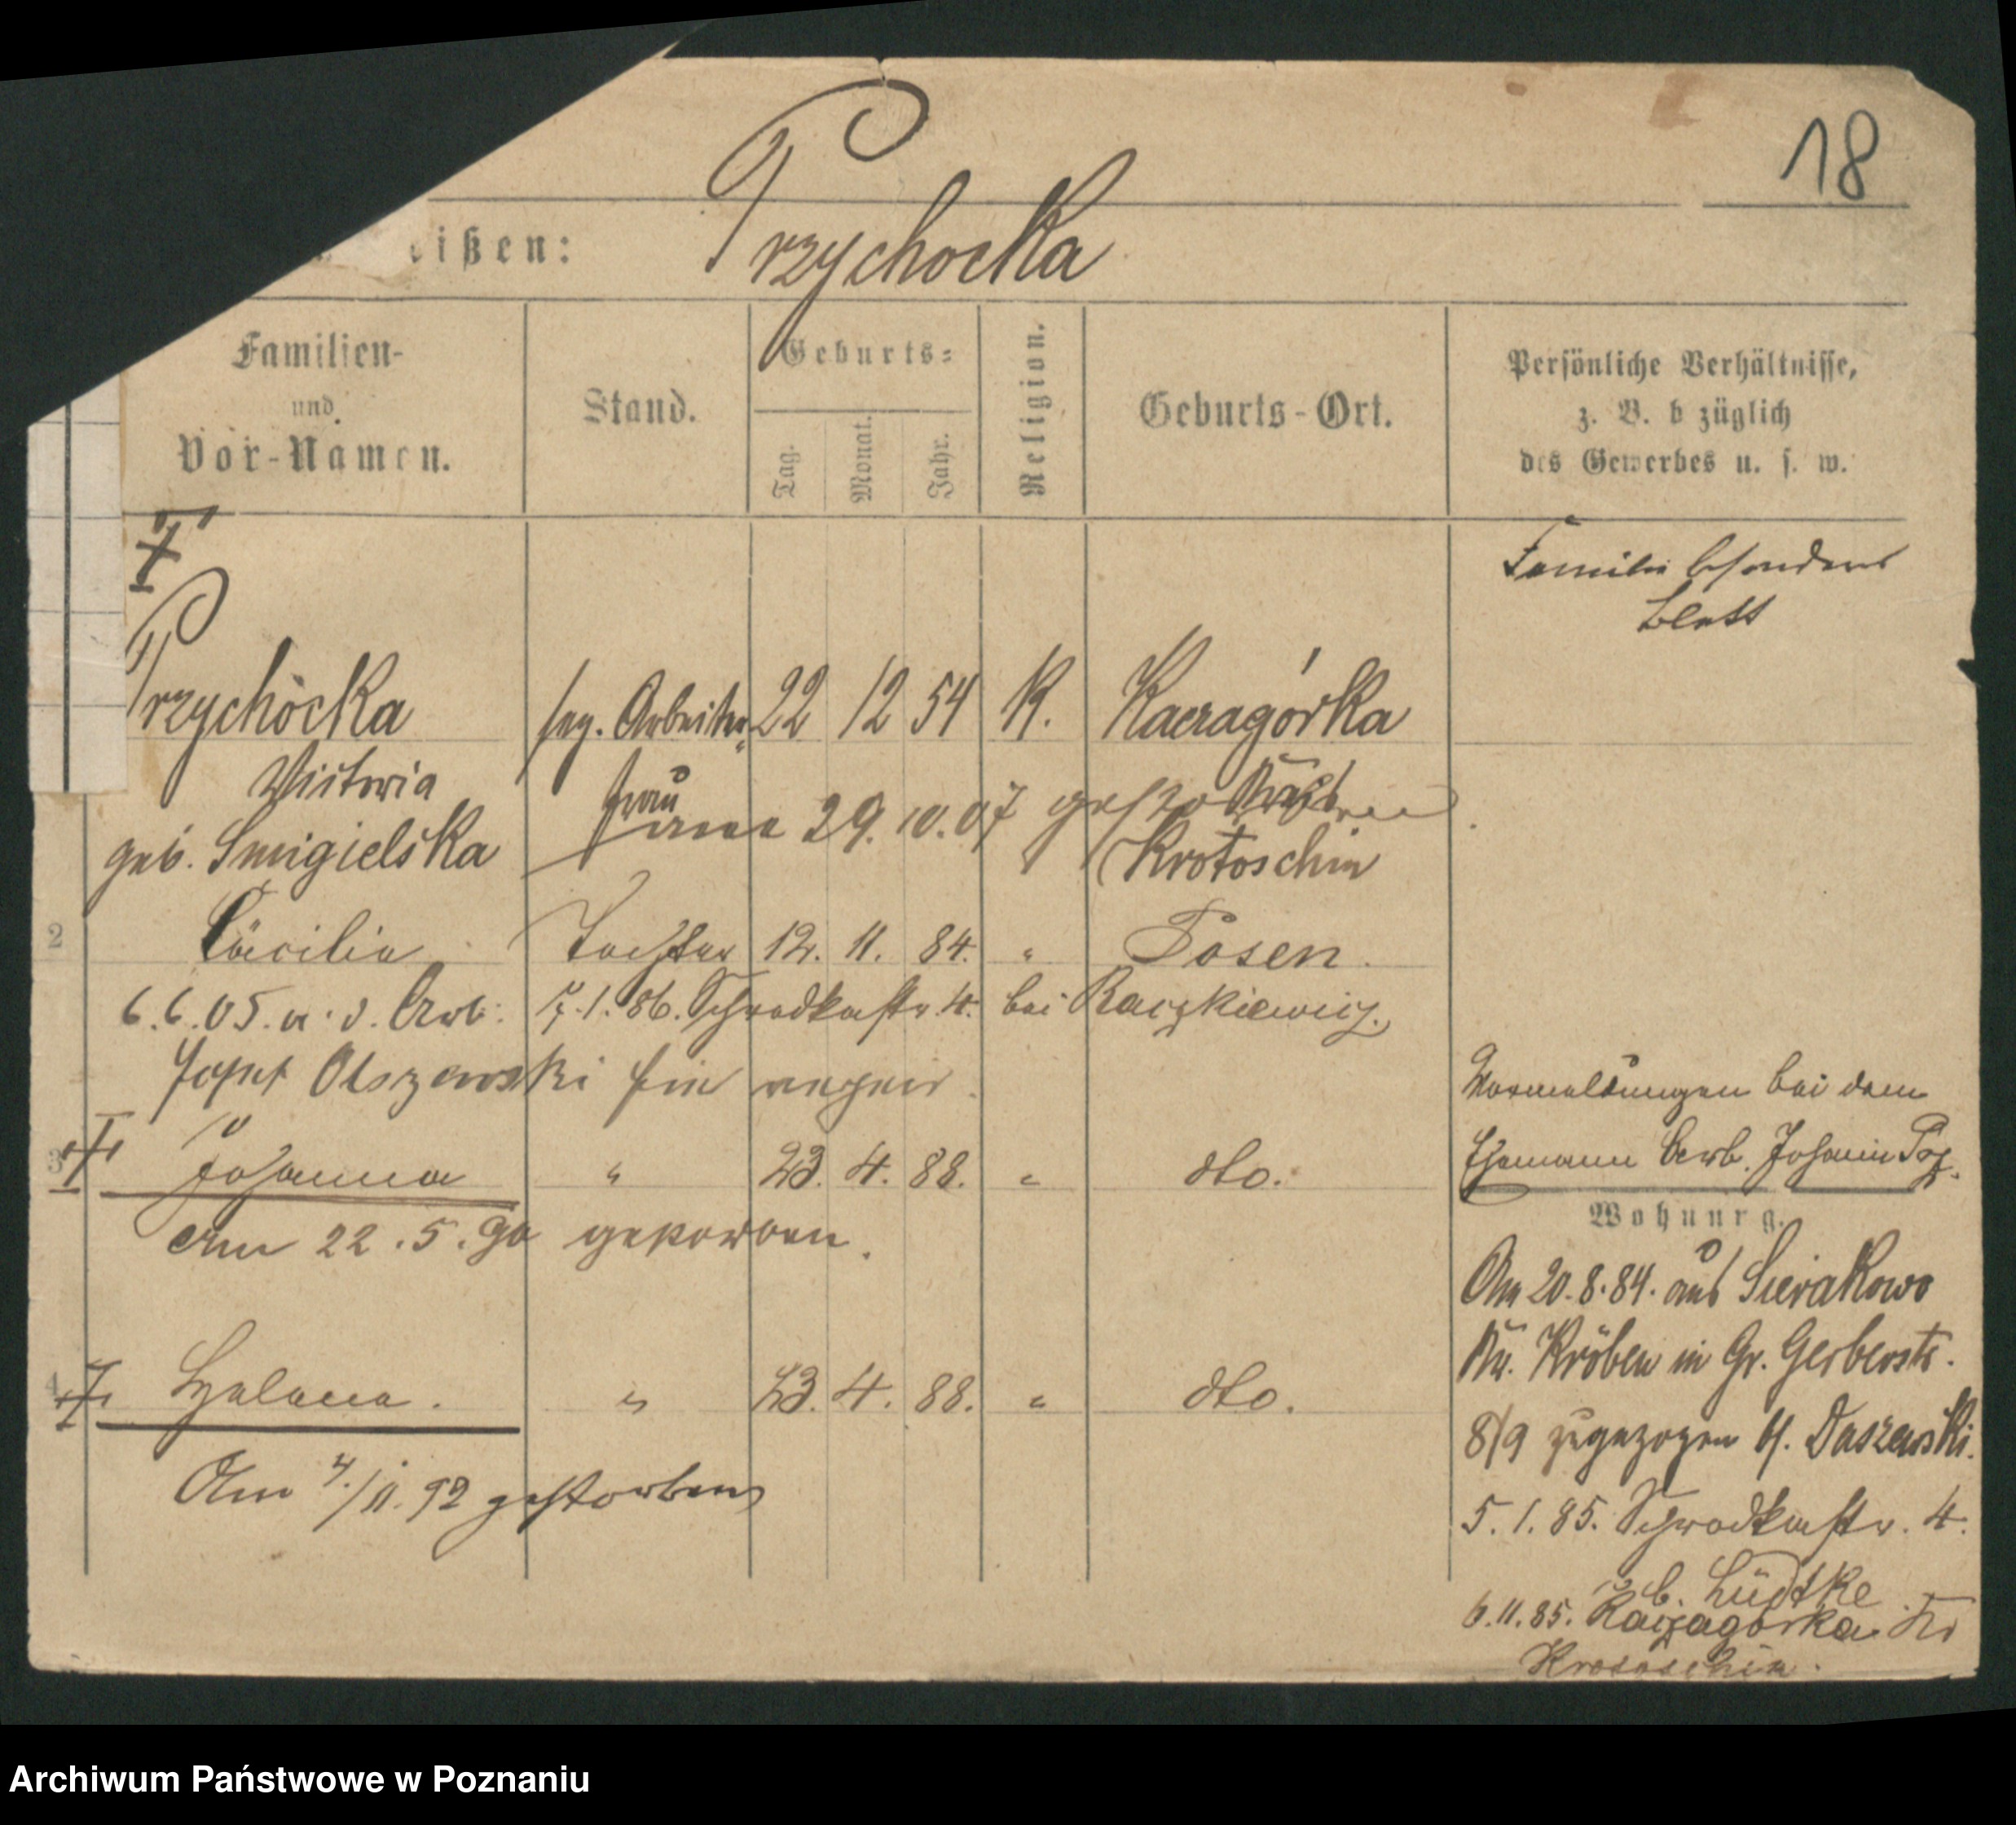 18
eißen: Przychocka
Familien-
und
Vor-Namen.
Stand.
Geburts-
Tag.
Monat.
Jahr.
Religion.
Geburts-Ort.
Persönliche Verhältnisse,
z. B. b züglich
des Gewerbes u. s. w.
Familie besonderes
Blatt
Przychocka sep. Arbeiter 22 12 54 K. Kaczagórka
Victoria frau
am 29.10.07 gestorben
geb. Smigielska Krotoschin
2 Cäcilie Tochter 12. 11. 84. " Posen.
6.6.05. m. d. Arb. 7.1.86. Schrodkastr. 4. bei Raczkiewicz.
Josef Olszewski hier
3 Johanna " 23. 4. 88. " dto.
Am 22.5.90 gestorben.
4 Helena. " 23. 4. 88. " dto.
Am 4./11.92 gestorben
Anmeldungen bei dem
Ehemann Arb. Johann Prz.
Wohnung.
Am 20.8.84. aus Sierakowo
Kr. Kröben in Gr. Gerberstr.
8/9 zugezogen b. Daszewski.
5.1.85. Schrodkastr. 4.
b. Lüdtke
6.11.85. Kaczagorka Kr
Krotoschin.
Archiwum Państwowe w Poznaniu